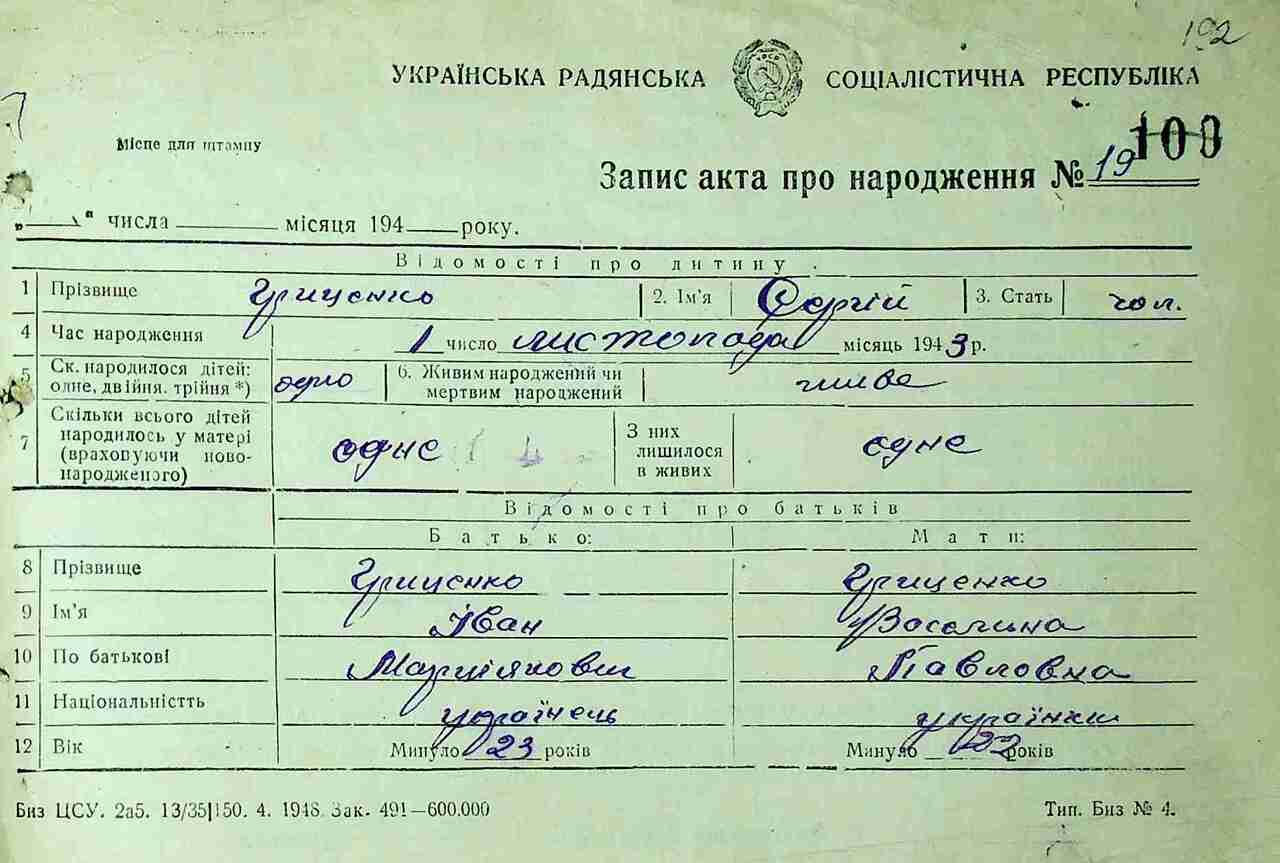 192
УКРАЇНСЬКА РАДЯНСЬКА СОЦІАЛІСТИЧНА РЕСПУБЛІКА
Місце для штампу
100
Запис акта про народження № 19
„ " числа місяця 194 року.
Відомості про дитину.
1 Прізвище Гриценко 2. Ім'я Сергій 3. Стать чол.
4 Час народження 1 число листопада місяць 1943 р.
5 Ск. народилося дітей: одне, двійня. трійня *) одно 6. Живим народжений чи мертвим народжений живе
7 Скільки всього дітей народилось у матері (враховуючи новонародженого) одне 4 З них лишилося в живих одне
Відомості про батьків
Батько: Мати:
8 Прізвище Гриценко Гриценко
9 Ім'я Іван
10 По батькові Павловна
11 Національністть українець українка
12 Вік Минуло 23 років Минуло 22 років
Биз ЦСУ. 2а5. 13/35|150. 4. 1948. Зак. 491—600.000 Тип. Биз № 4.